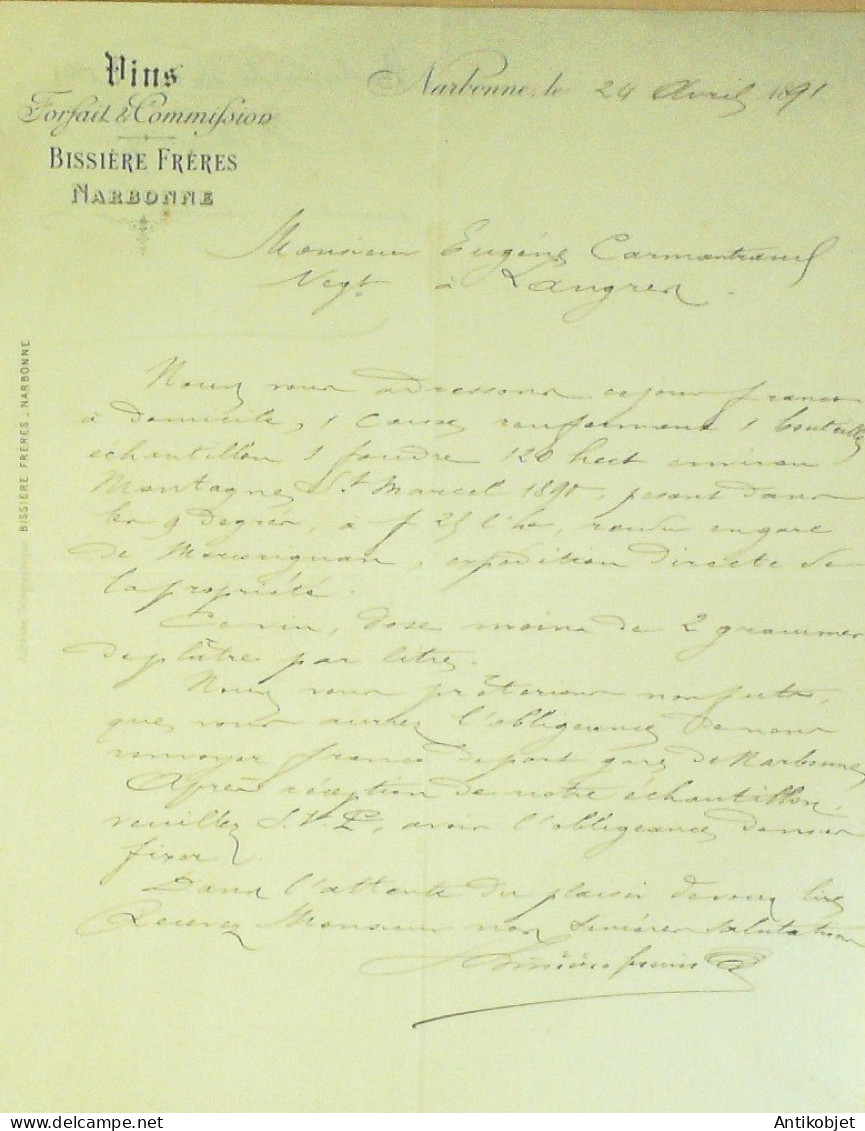 Vins
Forfait & Commission
BISSIÈRE FRÈRES
NARBONNE
Narbonne, le 24 Avril 1891
Monsieur Eugène Carmantrand
Negt à Langres.
BISSIERE FRERES _ NARBONNE
Nous vous adressons ce jour franco
à domicile, 1 caisse renfermant 1 bouteille
échantillon 1 foudre 120 hect environ
Montagne St Marcel 1890, pesant dans
les 9 degrés, à f 25 l'ho, rendu en gare
de Marcorignan, expédition directe de
la propriété.
Ce vin, dose moins de 2 grammes
de plâtre par litre.
Nous vous prêterions nos futs,
que vous aurez l'obligeance de nous
renvoyer franco de port gare de Narbonne
Après réception de notre échantillon,
veuillez S.V.P, avoir l'obligeance de nous
fixer.
Dans l'attente du plaisir de vous lire
Recevez Monsieur nos sincères salutations
Bissière frères
Antikobjet